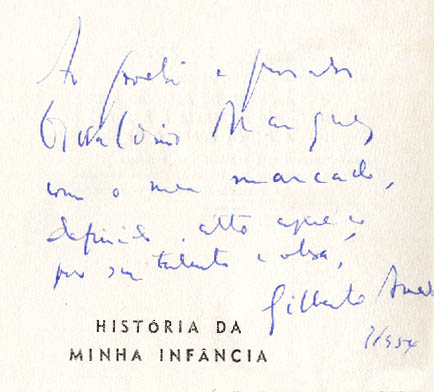 Ao poeta e pensador
Osvaldino Marques
com o meu marcado,
definido, alto apreço
por seu talento e obra,
Gilberto Amado
1954
HISTÓRIA DA
MINHA INFÂNCIA